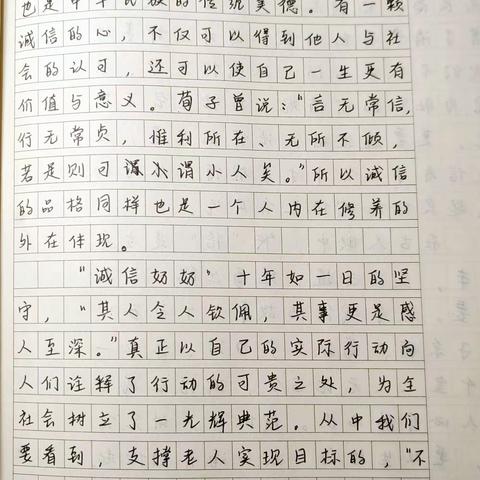 也是中华民族的传统美德。有一颗
诚信的心，不仅可以得到他人与社
会的认可，还可以使自己一生更有
价值与意义。荀子曾说：“言无常信，
行无常贞，惟利所在、无所不倾，
若是则可谓小人矣。”所以诚信
的品格同样也是一个人内在修养的
外在体现。
“诚信奶奶”十年如一日的坚
守，“其人令人钦佩，其事更是感
人至深。”真正以自己的实际行动向
人们诠释了行动的可贵之处，为全
社会树立了一光辉典范。从中我们
要看到，支撑老人实现目标的，“不